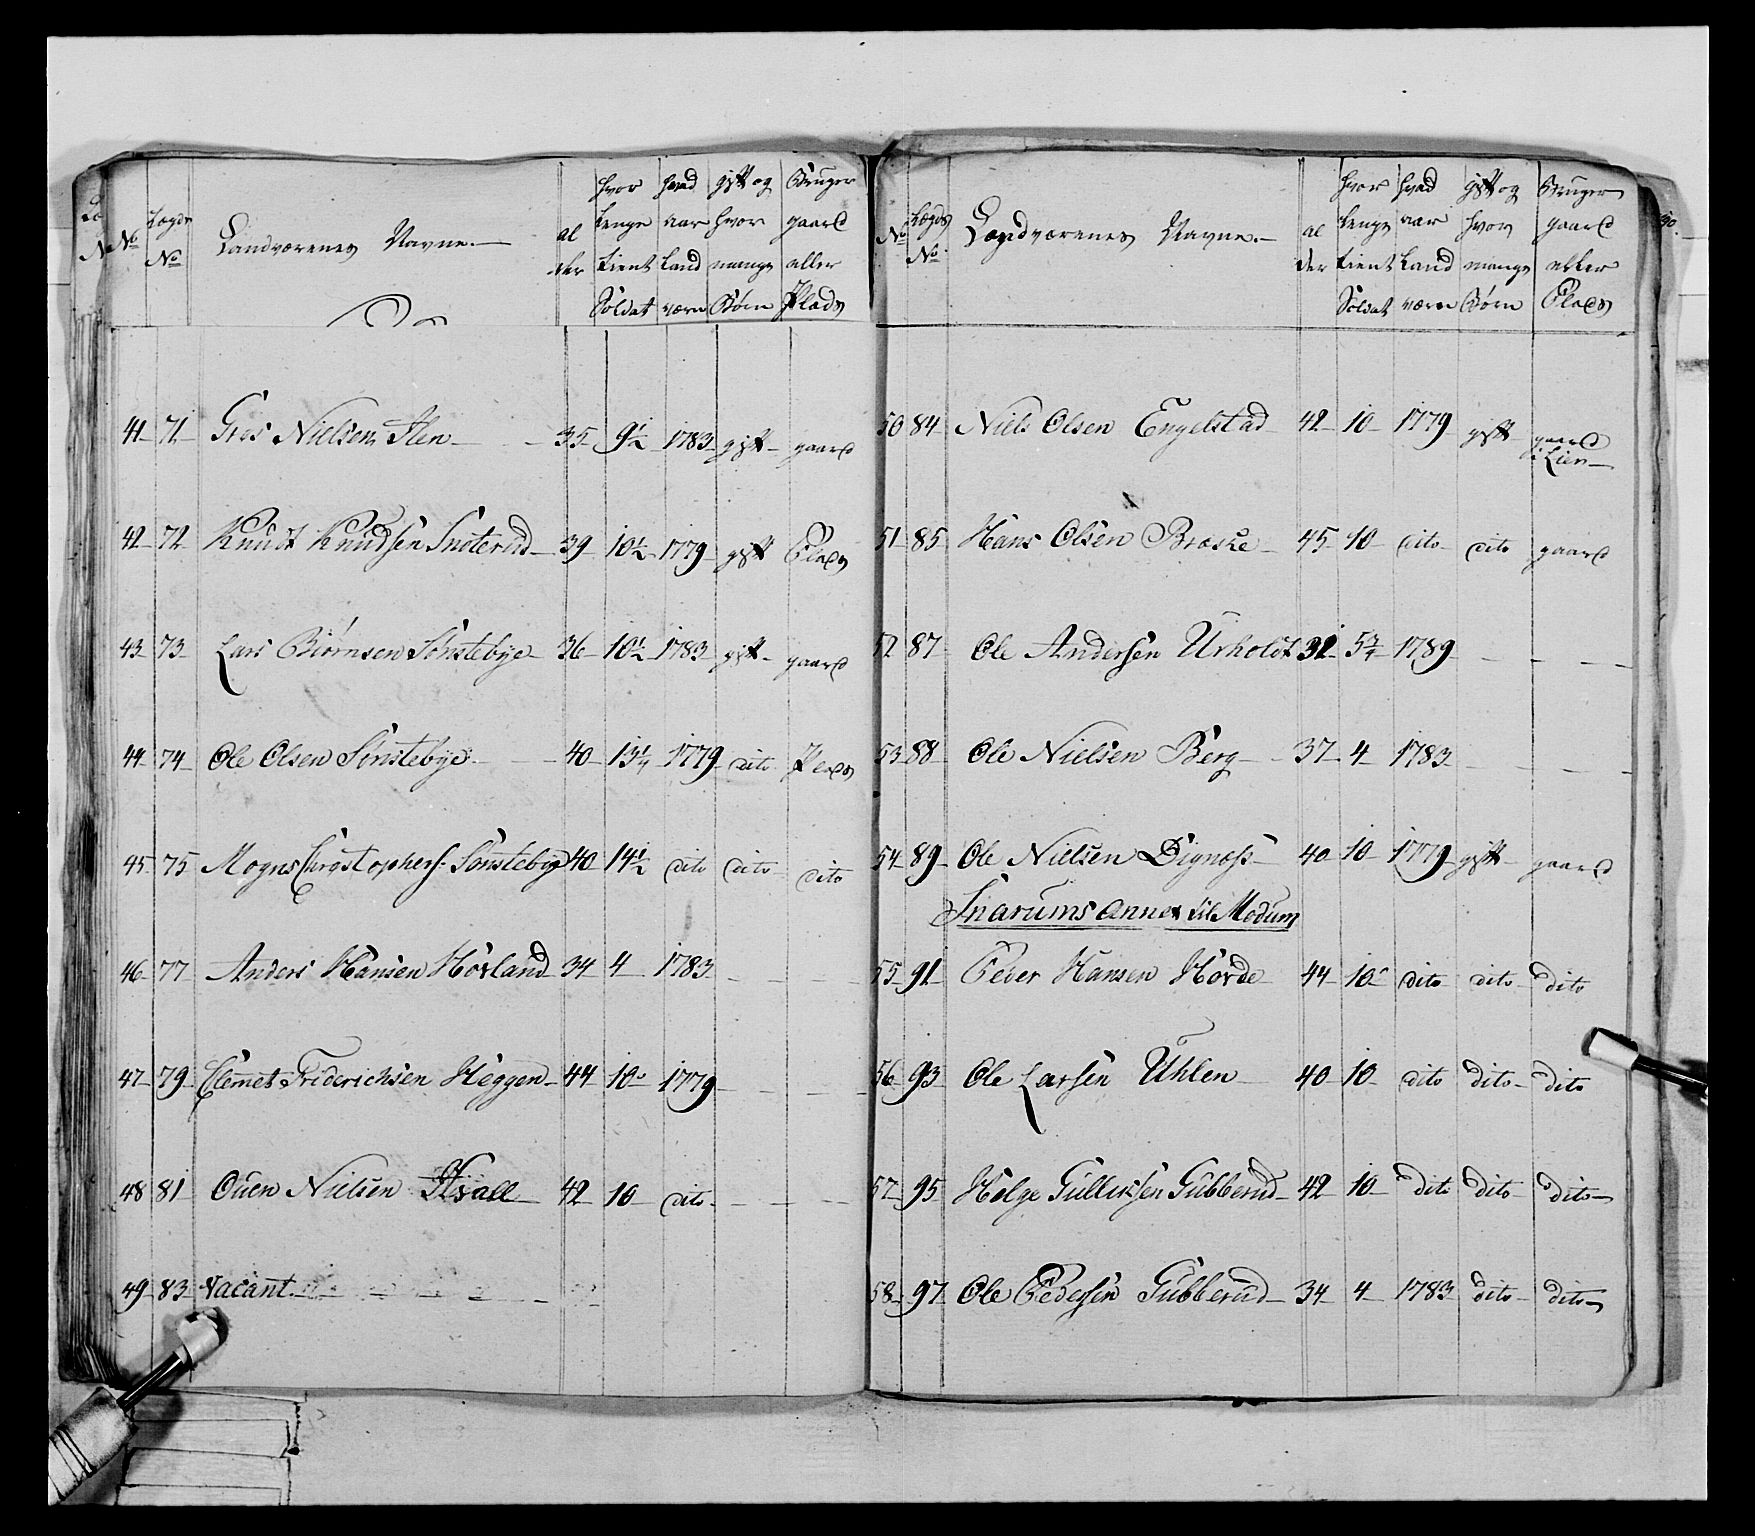 No
Lægds No
Landværenes Navne.
al der
hvor lenge tient Soldat
hvad aar Land værn
gift og hvor mange Børn
Bruger gaard eller Plads
41 71 Nielsen 35 9½ 1783 gift gaard
42 72 Knudt Knudsen Snoterud 39 10½ 1779 gift Plads
43 73 Lars Biørnsen Sønstebye 36 10½ 1783 gift gaard
44 74 Ole Olsen Sønstebye 40 13¼ 1779 dito Plads
45 75 Mogns Christophers: Sønstebye 40 14½ dito dito dito
46 77 Anders Hansen Hovland 34 4 1783
47 79 Clemet Friderichsen Heggen 44 10 1779
48 81 Ouen Nielsen 42 10 dito
49 83 Vacant
No
Lægds No
Landværenes Navne.
al der
hvor lenge tient Soldat
hvad aar Land værn
gift og hvor mange Børn
Bruger gaard eller Plads
50 84 Niels Olsen Engelstad 42 10 1779 gift gaard i Lien
51 85 Hans Olsen Braske 45 10 dito dito gaard
52 87 Ole Andersen Urholdt 31 5¾ 1789
53 88 Ole Nielsen Berg 37 4 1783
54 89 Ole Nielsen Dignæss 40 10 1779 gift gaard
Snarums Annex til Modum
55 91 Peder Hansen Hovde 44 10 dito dito dito
56 93 Ole Larsen Uhlen 40 10 dito dito dito
57 95 Helge Gulliksen Gubberud 42 10 dito dito dito
58 97 Ole Pedersen Gubberud 34 4 1783 dito dito